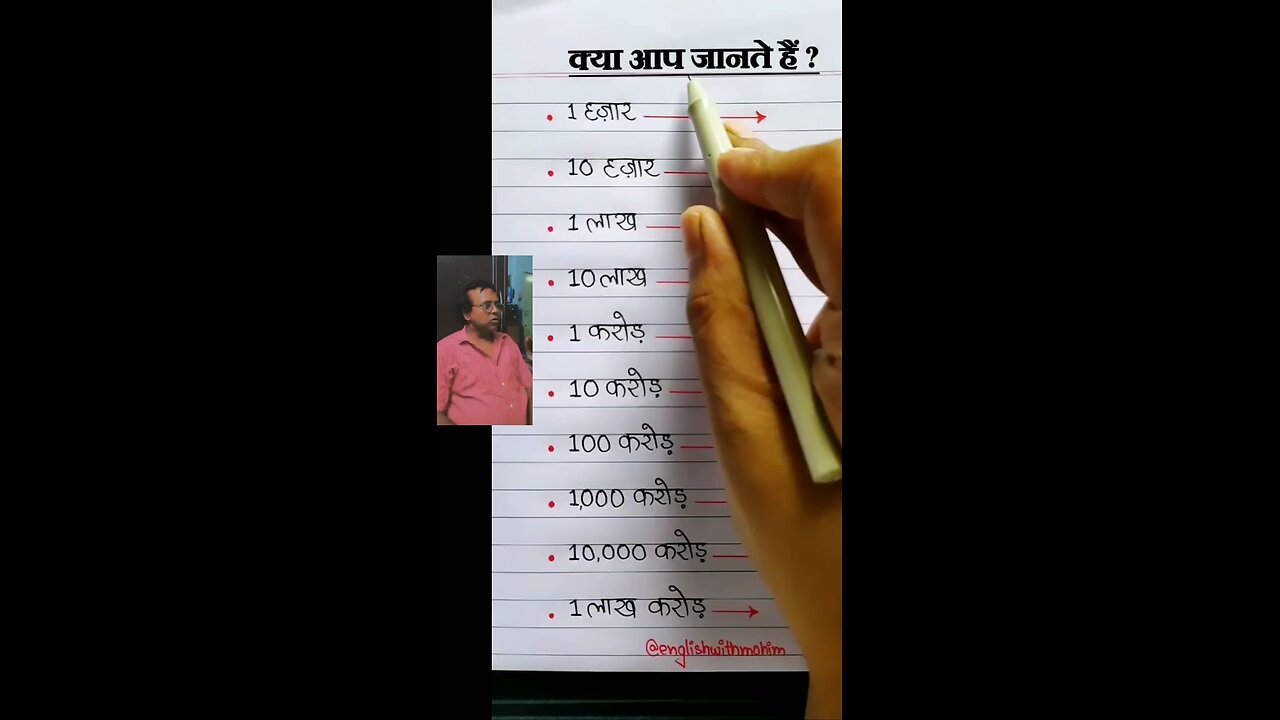 क्या आप जानते हैं ?
1 हज़ार
10 हज़ार
1 लाख
10 लाख
1 करोड़
10 करोड़
100 करोड़
1,000 करोड़
10,000 करोड़
1 लाख करोड़
@englishwithmohim